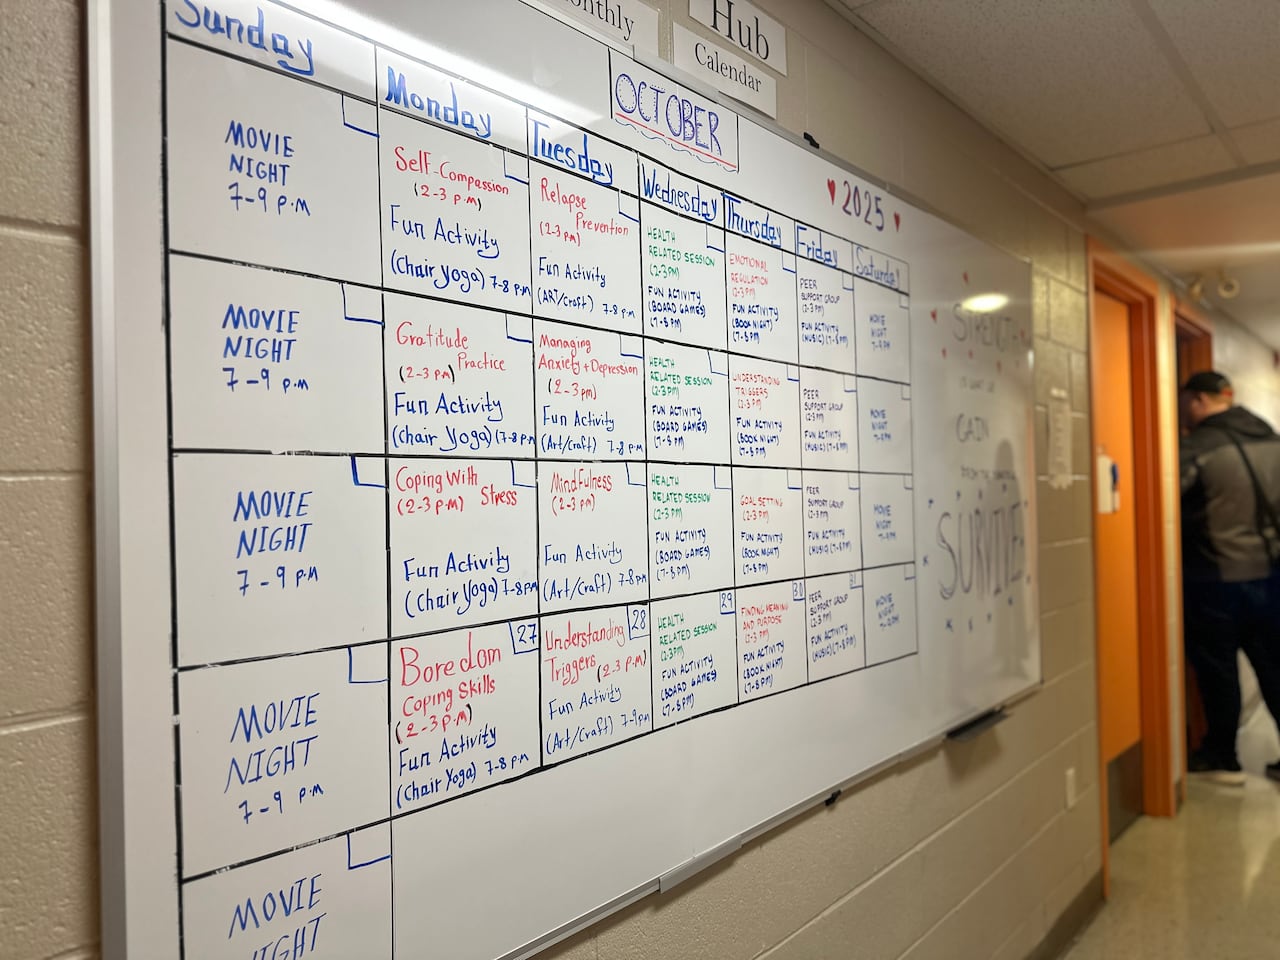 Monthly
Hub
Calendar
OCTOBER
♥ 2025 ♥
Sunday
Monday
Tuesday
Wednesday
Thursday
Friday
Saturday
MOVIE
NIGHT
7-9 P.M
Self-Compassion
(2-3 P.M)
Fun Activity
(Chair Yoga) 7-8 P.m
Relapse
Prevention
(2-3 P.M)
Fun Activity
(ART/Craft) 7-8 P.m
HEALTH
RELATED SESSION
(2-3 PM)
FUN ACTIVITY
(BOARD GAMES)
(7-8 PM)
EMOTIONAL
REGULATION
(2-3 PM)
FUN ACTIVITY
(BOOK NIGHT)
(7-8 PM)
PEER
SUPPORT GROUP
(2-3 PM)
FUN ACTIVITY
(MUSIC) (7-8 PM)
MOVIE
NIGHT
7-9 PM
MOVIE
NIGHT
7-9 P.M
Gratitude
Practice
(2-3 P.M)
Fun Activity
(chair Yoga) (7-8 P.m
Managing
Anxiety + Depression
(2-3 pm)
Fun Activity
(Art/Craft) 7-8 P.m
HEALTH
RELATED SESSION
(2-3 PM)
FUN ACTIVITY
(BOARD GAMES)
(7-8 PM)
UNDERSTANDING
TRIGGERS
(2-3 PM)
FUN ACTIVITY
(BOOK NIGHT)
(7-8 PM)
PEER
SUPPORT GROUP
(2-3 PM)
FUN ACTIVITY
(MUSIC) (7-8 PM)
MOVIE
NIGHT
7-9 PM
MOVIE
NIGHT
7-9 P.M
Coping With
(2-3 P.M) Stress
Fun Activity
(Chair Yoga) 7-8 P.M
Mindfulness
(2-3 P.M)
Fun Activity
(Art/Craft) 7-8 P.m
HEALTH
RELATED SESSION
(2-3 PM)
FUN ACTIVITY
(BOARD GAMES)
(7-8 PM)
GOAL SETTING
(2-3 PM)
FUN ACTIVITY
(BOOK NIGHT)
(7-8 PM)
PEER
SUPPORT GROUP
(2-3 PM)
FUN ACTIVITY
(MUSIC) (7-8 PM)
MOVIE
NIGHT
7-9 PM
MOVIE
NIGHT
7-9 P.M
27
Boredom
Coping Skills
(2-3 P.M)
Fun Activity
(Chair Yoga) 7-8 P.M
28
Understanding
Triggers (2-3 P.M)
Fun Activity
(Art/Craft) 7-9pm
29
HEALTH
RELATED SESSION
(2-3PM)
FUN ACTIVITY
(BOARD GAMES)
(7-8PM)
30
FINDING MEANING
AND PURPOSE
(2-3 PM)
FUN ACTIVITY
(BOOK NIGHT)
(7-8 PM)
31
PEER
SUPPORT GROUP
(2-3 PM)
FUN ACTIVITY
(MUSIC) (7-8 PM)
MOVIE
NIGHT
7-9 PM
MOVIE
NIGHT
STRENGTH
IS WHAT WE
GAIN
FROM THE
SURVIVE